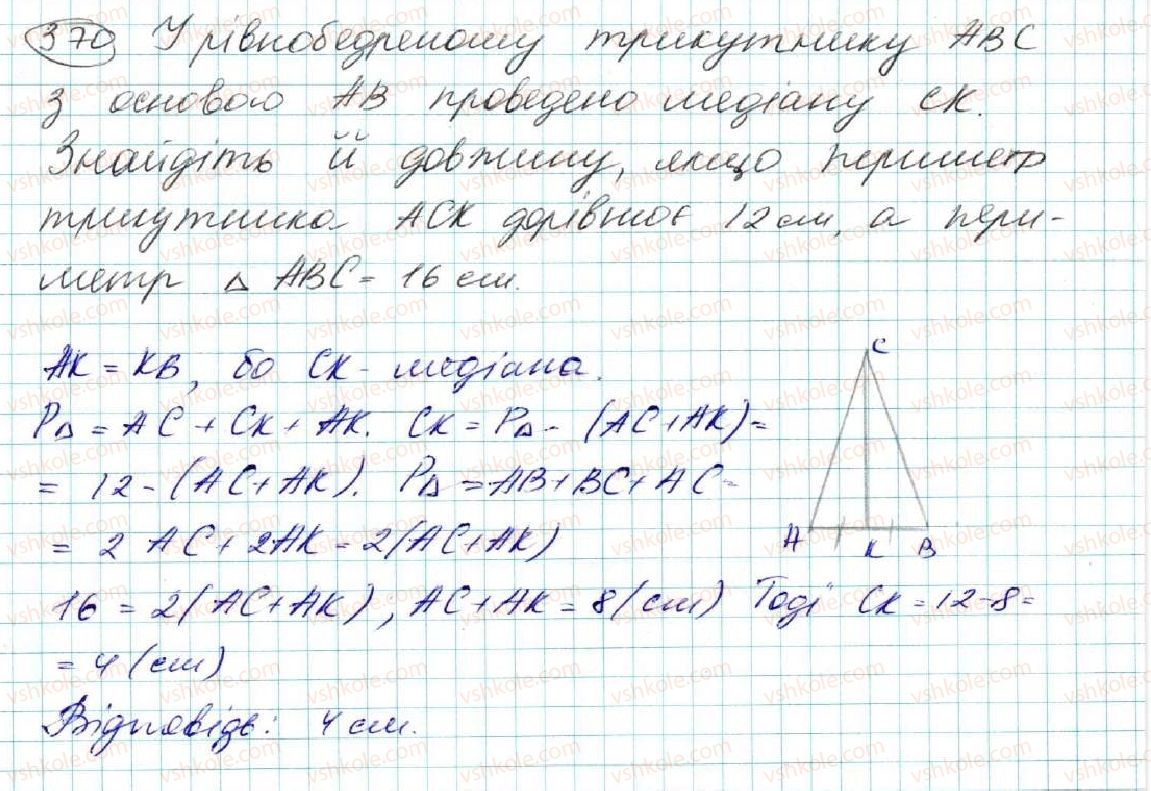 370 У рівнобедреному трикутнику ABC
з основою AB проведено медіану CK.
Знайдіть її довжину, якщо периметр
трикутника ACK дорівнює 12 см, а пери-
метр △ ABC = 16 см.
AK = KB, бо CK - медіана.
P△ = AC + CK + AK. CK = P△ - (AC + AK) =
= 12 - (AC + AK). P△ = AB + BC + AC =
= 2 AC + 2AK = 2(AC + AK)
16 = 2(AC + AK), AC + AK = 8 (см) Тоді CK = 12 - 8 =
= 4 (см)
Відповідь: 4 см.
C
A K B